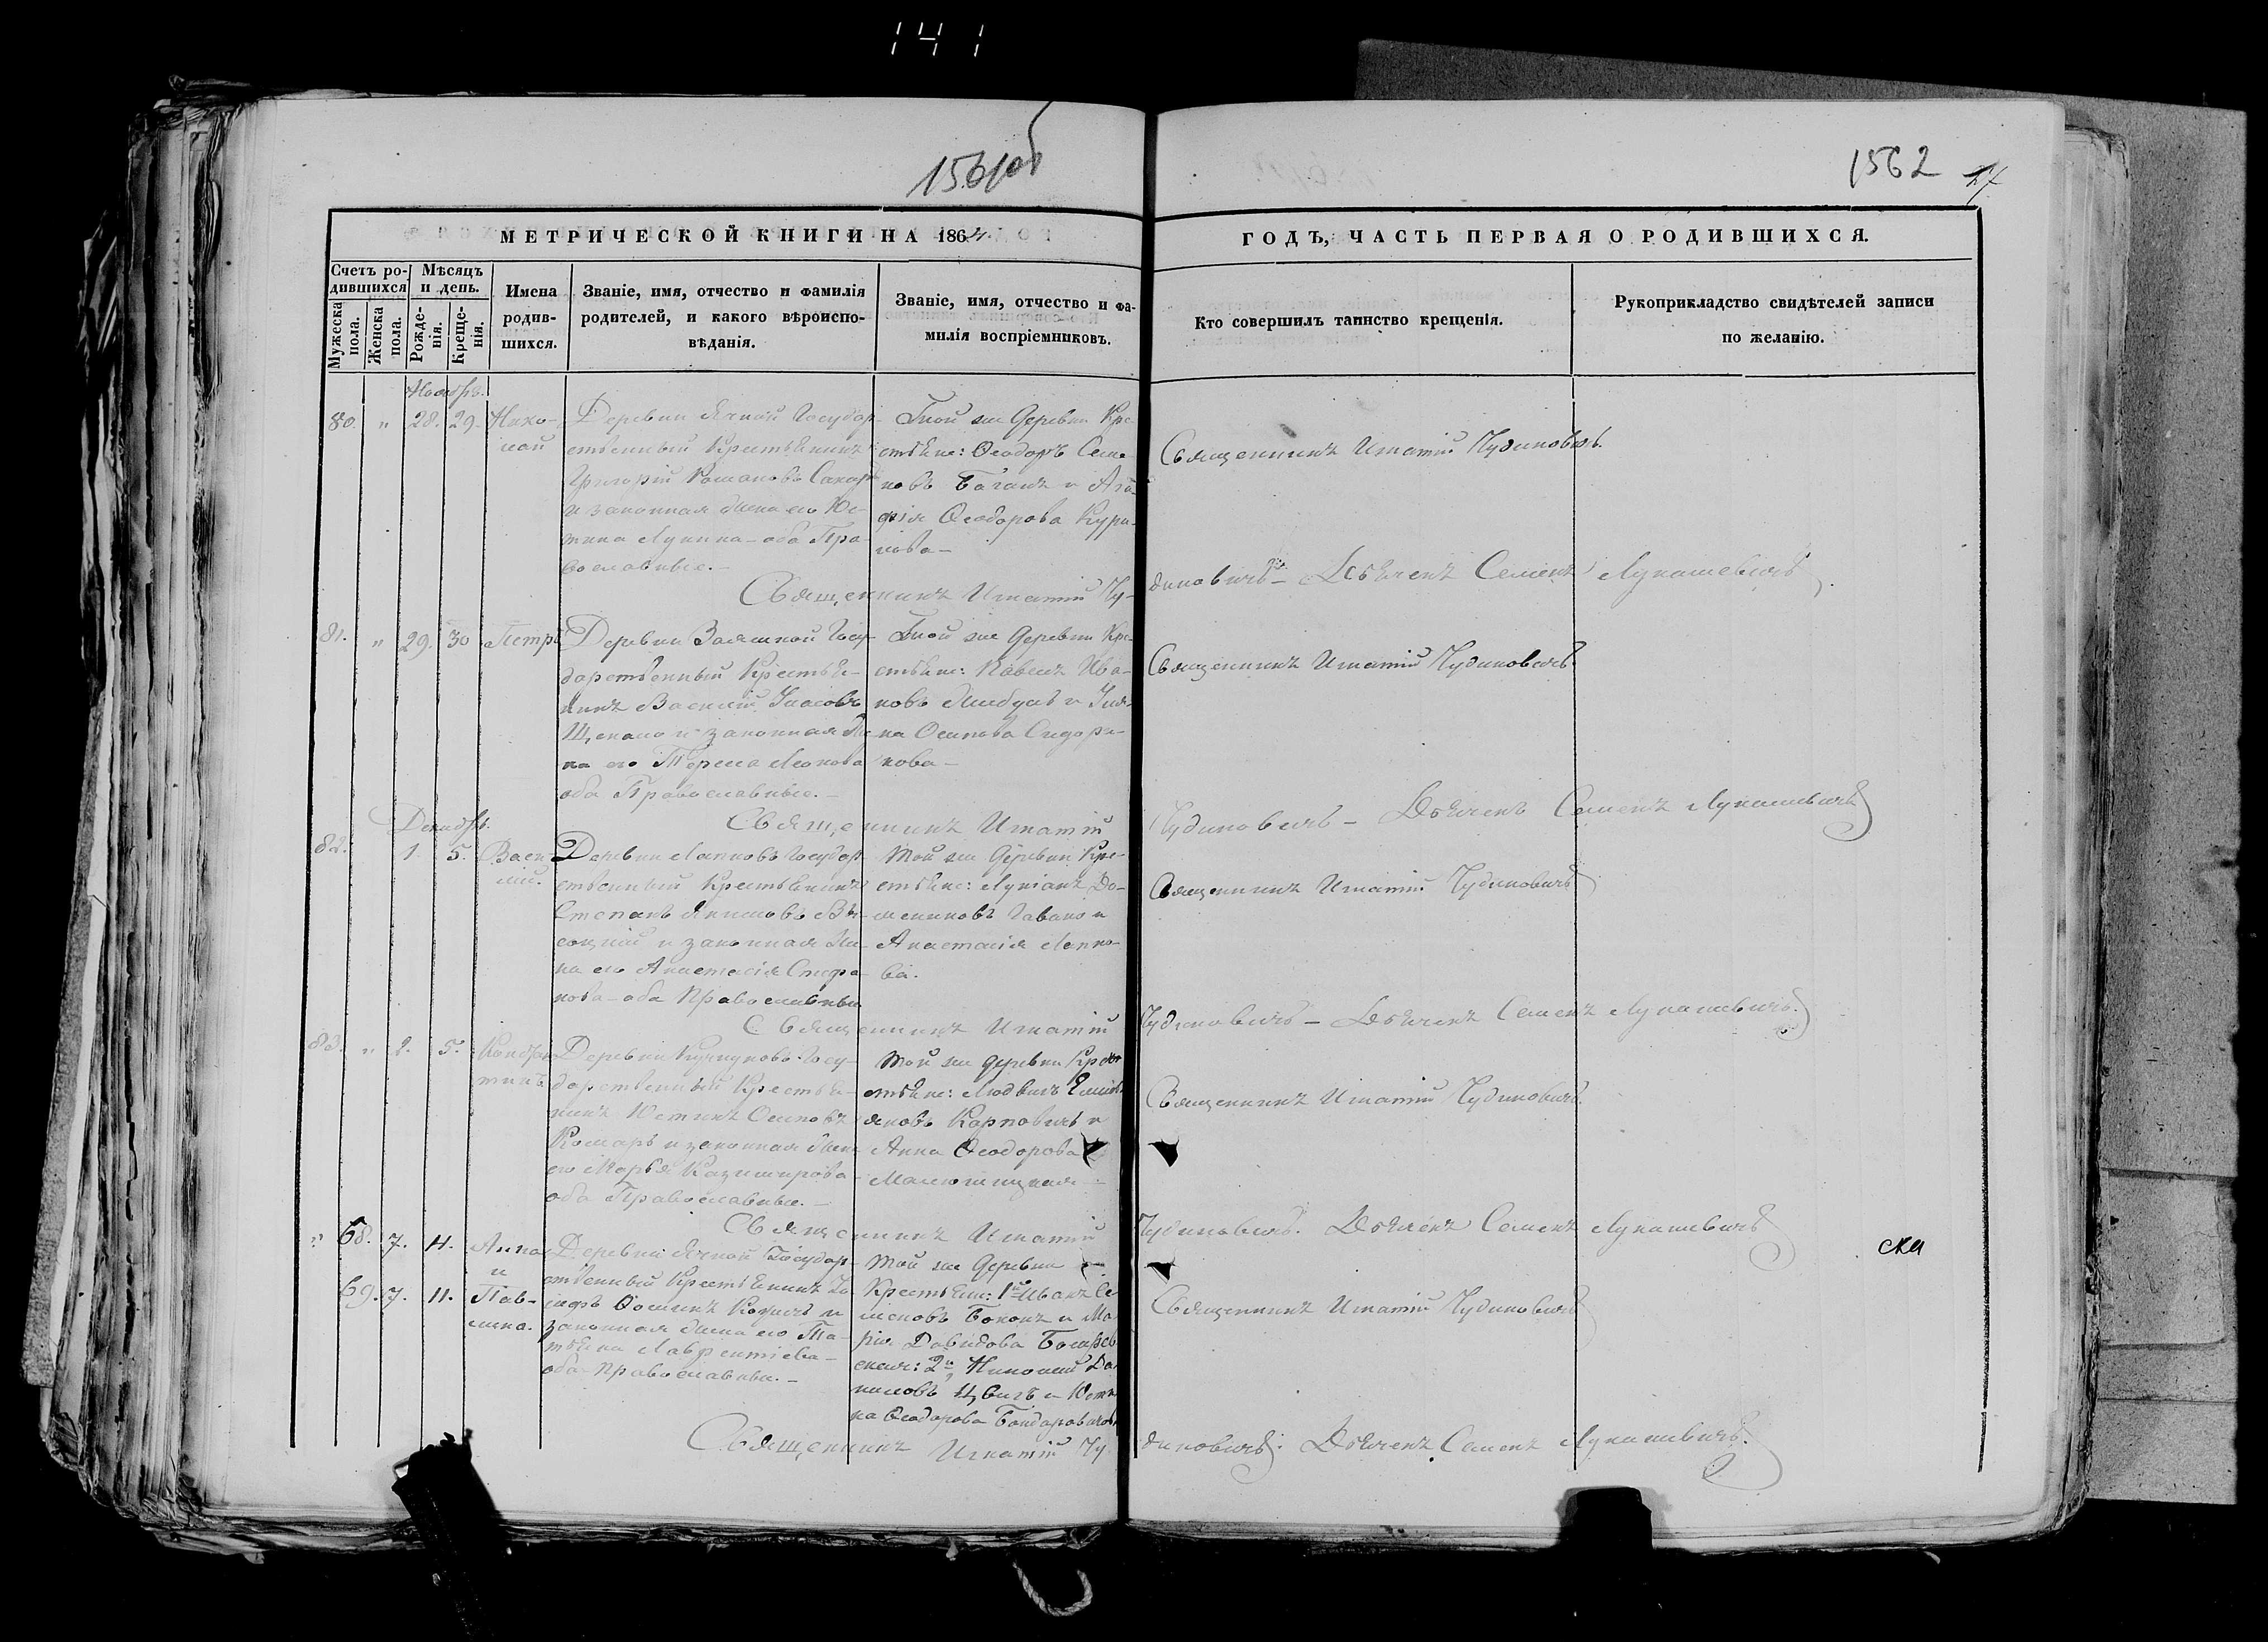 141
1561об
1562
27
МЕТРИЧЕСКОЙ КНИГИ НА 1864.
ГОДЪ, ЧАСТЬ ПЕРВАЯ О РОДИВШИХСЯ.
Счетъ ро-
дившихся
Мужеска пола.
Женска пола.
Мѣсяцъ
и день.
Рожде-
нія.
Креще-
нія.
Имена
родив-
шихся.
Званіе, имя, отчество и фамилія
родителей, и какого вѣроиспо-
вѣданія.
Званіе, имя, отчество и фа-
милія воспріемниковъ.
Кто совершилъ таинство крещенія.
Рукоприкладство свидѣтелей записи
по желанію.
Ноябрь.
80. " 28. 29. Нико-
лай
Деревни Ячной Государ-
ственный Крестьянинъ
Григорій Романовъ
и законная жена его Юс-
тина Лукина - оба Пра-
вославные. -
Тной же Деревни Кре-
стьяне: Ѳеодоръ Семе-
новъ Баганъ и Ага-
фія Ѳеодорова Кури-
лова -
Священникъ Игнатій Чудиновичъ.
Священникъ Игнатій Чу-
диновичъ - Дьячекъ Семенъ Лукашевичъ.
81. " 29. 30 Петръ
Деревни Госу-
дарственный Крестья-
нинъ Василій
и законная Же-
на его Тереса
оба Православные. -
Тной же Деревни Кре-
стьяне: Павелъ Ива-
новъ и Улья-
на Осипова Сидори-
кова -
Священникъ Игнатій Чудиновичъ.
Священникъ Игнатій
Чудиновичъ - Дьячекъ Семенъ Лукашевичъ
Декабрь.
82. 1. 5. Васи-
лій.
Деревни Лапковъ Государ-
ственный Крестьянинъ
Степанъ Якимовъ Вы-
соцкій и законная Же-
на его Анастасія Стефа-
нова - оба Православны
Той же Деревни Кре-
стьяне: Лукіанъ До-
и
Анастасія Лапко-
ва.
Священникъ Игнатій Чудиновичъ
Священникъ Игнатій
Чудиновичъ - Дьячекъ Семенъ Лукашевичъ.
83. " 2. 5.
Деревни Госу-
дарственный Крестья-
нинъ Юстинъ Осиповъ
Комаръ и законная Жена
его Марья Казимирова
оба Православные. -
Той же деревни Кре-
стьяне: Людвигъ Емиль-
яновъ Карповичъ и
Анна Ѳеодорова
Священникъ Игнатій Чудиновичъ.
Священникъ Игнатій
Чудиновичъ. Дьячекъ Семенъ Лукашевичъ
" 68. 7. 11. Анна
и
69. 7. 11. Пав-
лина.
Деревни Ячной Государ-
ственный Крестьянинъ Іо-
сифъ Ѳоминъ и
законная Жена его Та-
тьяна Лаврентіева -
оба Православны. -
Той же Деревни
Крестьяне: 1й Иванъ Се-
меновъ и Ма-
рія Давидова
2й Николай Да-
ниловъ и Юсти-
на Ѳеодорова
ска
Священникъ Игнатій Чудиновичъ
Священникъ Игнатій Чу-
диновичъ. Дьячекъ Семенъ Лукашевичъ.